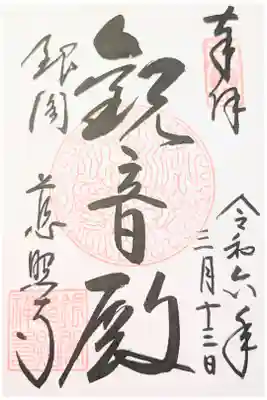 奉拝
令和六年
三月十三日
観音殿
銀閣
慈照寺